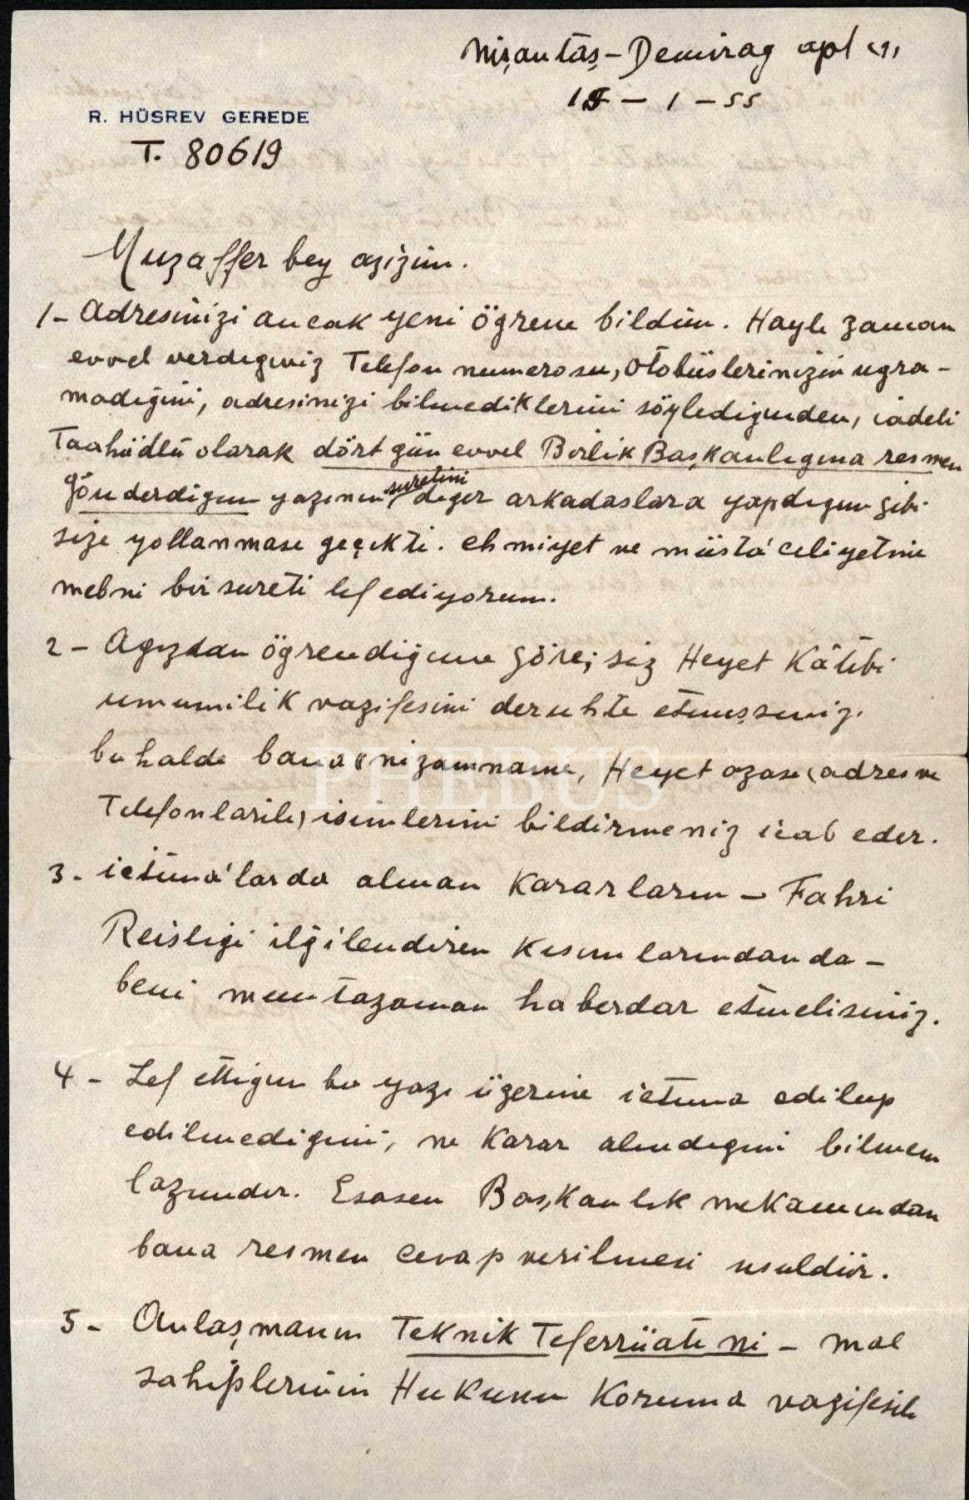 Nişantaş - Demirag apt
- 1 - 55
R. HÜSREV GEREDE
T. 80619
Muzaffer bey azizim.
1- Adresinizi ancak yeni ögrene bildim. Hayli zaman
evvel verdiginiz Telefon numerosu, otobüslerinizin ugra-
madığını, adresinizi bilmediklerini söylediginden, iadeli
Taahüdlü olarak dört gün evvel Birlik Başkanlıgına resmen
suretini
gönderdigim yazının diger arkadaslara yapdıgım gibi
size yollanması geçikti. ehmiyet ve müsta'celiyetine
mebni bir sureti lef ediyorum.
2 - Agızdan ögrendiğime göre; siz Heyet Kâtibi
umumilik vazifesini deruhte etmişsiniz.
bu halde bana nizamname, Heyet azası (adres ve
Telefonlarile) isimlerini bildirmeniz icab eder.
3 - ictima'larda alınan Kararların - Fahri
Reisligi ilgilendiren kısımlarından da -
beni muntazaman haberdar etmelisiniz.
4 - Lef ettigim bu yazı üzerine ictima edilup
edilmedigini, ne Karar alındıgını bilmem
lazımdır. Esasen Başkanlık makamından
bana resmen cevap verilmesi usuldür.
5 - Anlaşmanın Teknik Teferrüatını - mal
sahiplerinin Hukunu Koruma vazifesile
PHEBUS